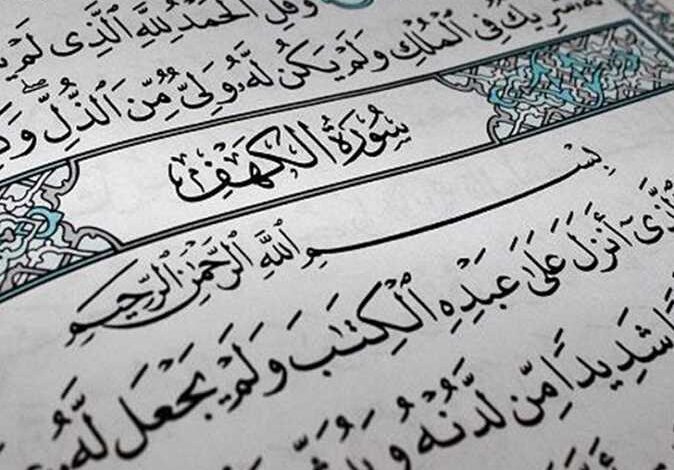 وَقُلِ ٱلْحَمْدُ لِلَّهِ ٱلَّذِى لَمْ
شَرِيكٌ فِى ٱلْمُلْكِ وَلَمْ يَكُن لَّهُۥ وَلِىٌّ مِّنَ ٱلذُّلِّ
سُورَةُ الكَهْفِ
بِسْمِ ٱللَّهِ ٱلرَّحْمَٰنِ ٱلرَّحِيمِ
ٱلَّذِىٓ أَنزَلَ عَلَىٰ عَبْدِهِ ٱلْكِتَٰبَ وَلَمْ يَجْعَل لَّهُۥ
شَدِيدًا مِّن لَّدُنْهُ